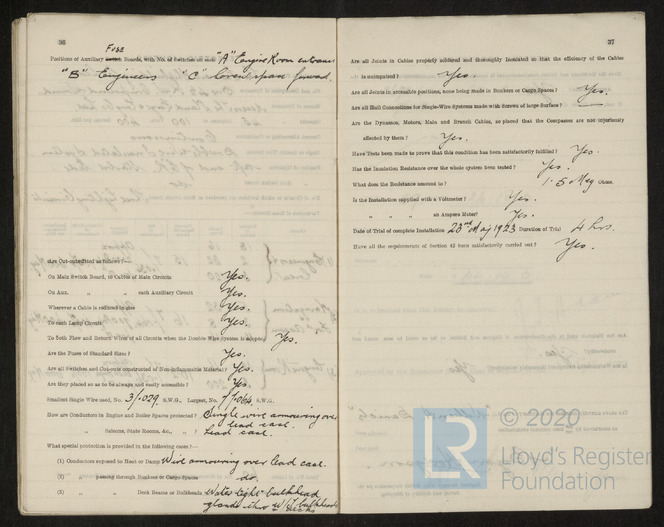 36
Fuse
Positions of Auxiliary Switch Boards, with No. of Switches on each "A" Engine Room entrance
"B" Engineers "C" forward.
are Cut-outs fitted as follows?—
On Main Switch Board, to Cables of Main Circuits Yes.
On Aux. " " each Auxiliary Circuit Yes.
Wherever a Cable is reduced in size Yes.
To each Lamp Circuit Yes.
To both Flow and Return Wires of all Circuits when the Double Wire System is adopted Yes.
Are the Fuses of Standard Sizes? Yes.
Are all Switches and Cut-outs constructed of Non-inflammable Material? Yes.
Are they placed so as to be always and easily accessible? Yes.
Smallest Single Wire used, No. 3/.029 S.W.G., Largest, No. 7/.064 S.W.G.
How are Conductors in Engine and Boiler Spaces protected? Single wire armouring over
lead case.
" Saloons, State Rooms, &c., " ? Lead case.
What special protection is provided in the following cases:—
(1) Conductors exposed to Heat or Damp Wire armouring over lead case.
(2) " passing through Bunkers or Cargo Spaces do.
(3) " " Deck Beams or Bulkheads Water tight bulkhead
glands thro W.T. bulkheads
37
Are all Joints in Cables properly soldered and thoroughly insulated so that the efficiency of the Cables
is unimpaired? Yes.
Are all Joints in accessible positions, none being made in Bunkers or Cargo Spaces? Yes.
Are all Hull Connections for Single-Wire Systems made with Screws of large Surface? —
Are the Dynamos, Motors, Main and Branch Cables, so placed that the Compasses are not injuriously
affected by them? Yes.
Have Tests been made to prove that this condition has been satisfactorily fulfilled? Yes.
Has the Insulation Resistance over the whole system been tested? Yes.
What does the Resistance amount to? 1.5 Meg Ohms.
Is the Installation supplied with a Voltmeter? Yes.
" " " an Ampere Meter? Yes.
Date of Trial of complete Installation 23rd May 1923 Duration of Trial 4 hrs.
Have all the requirements of Section 42 been satisfactorily carried out? Yes.
© 2020
LR
Lloyd's Register
Foundation